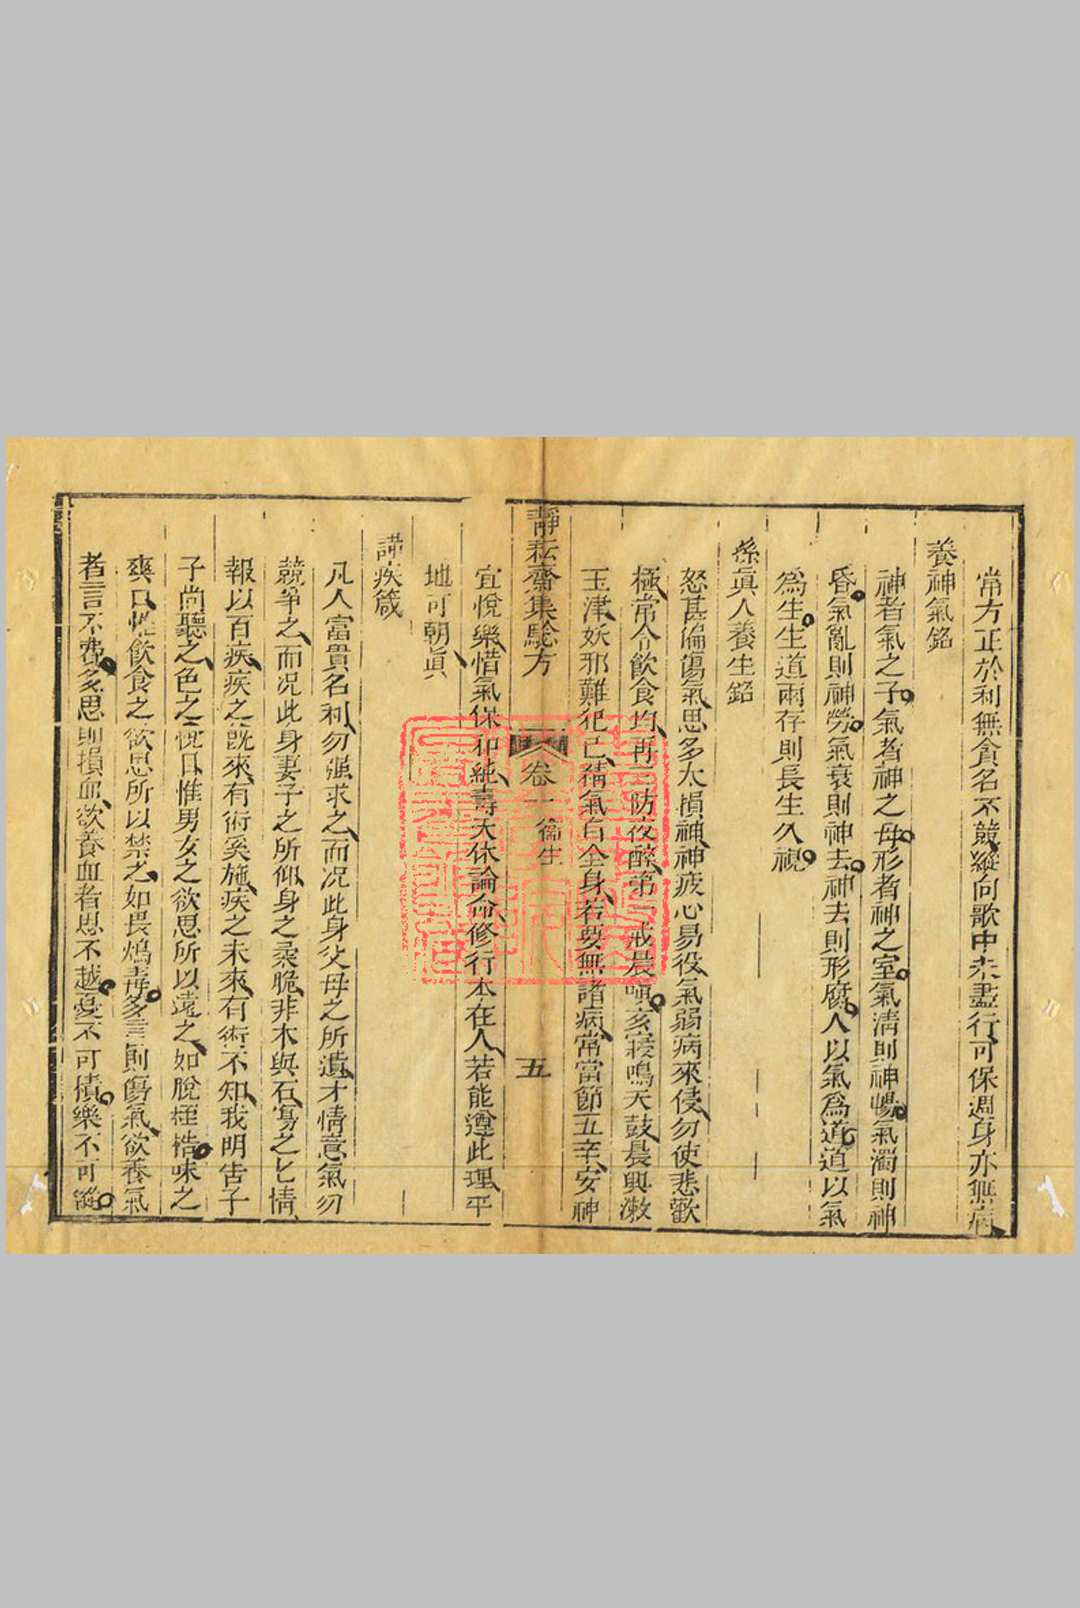 常方正於利無貪名不競縱向歌中未盡行可保週身亦無病
養神氣銘
神者氣之子氣者神之母形者神之室氣清則神暢氣濁則神
昏氣亂則神勞氣衰則神去神去則形腐人以氣為道道以氣
為生生道兩存則長生久視
孫眞人養生銘
怒甚偏傷氣思多太損神神疲心易役氣弱病來侵勿使悲歡
極常令飲食均再三防夜醉第一戒晨嗔亥寢鳴天鼓晨興漱
玉津妖邪難犯己精氣自全身若要無諸病常當節五辛安神
靜耘齋集驗方
卷一
衞生
五
宜悅樂惜氣保和純壽夭休論命修行本在人若能遵此理平
地可朝眞
疾箴
凡人富貴名利勿强求之而况此身父母之所遺才情意氣勿
競爭之而况此身妻子之所仰身之柔脆非木與石寡之七情
報以百疾疾之旣來有術奚施疾之未來有術不知我明告子
子尚聽之色之悅口惟男女之欲思所以遠之如脫桎梏味之
爽口性飲食之欲思所以禁之如畏鴆毒多言則傷氣欲養氣
者言不費多思則損血欲養血者思不越憂不可積樂不可縱